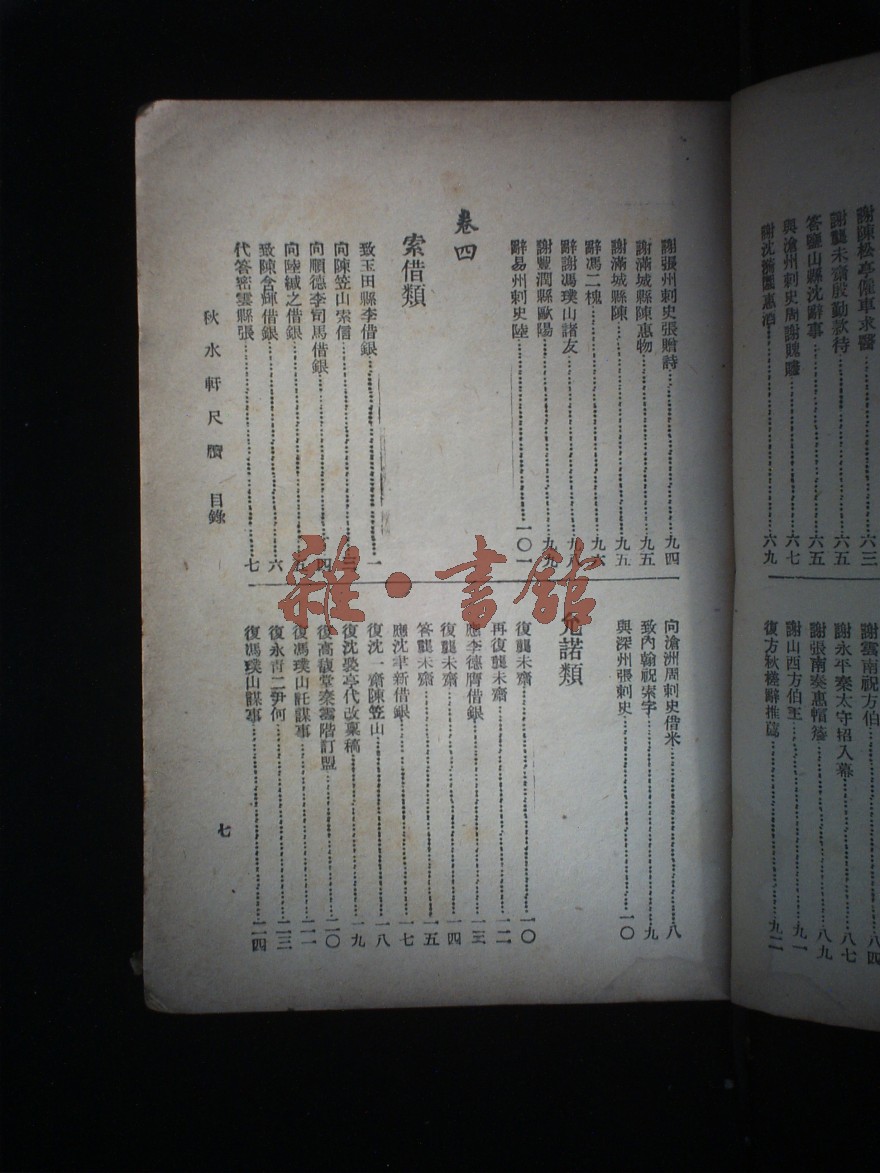 謝陳松亭僱車求醫⋯⋯六三
謝龔未齋殷勤款待⋯⋯六五
答鹽山縣沈辭事⋯⋯六五
與滄州刺史周謝賜贐⋯⋯六七
謝沈 惠酒⋯⋯六九
謝雲南祝方伯⋯⋯八四
謝永平秦太守招入幕⋯⋯八七
謝張南秦惠帽 ⋯⋯八九
謝山西方伯王⋯⋯九一
復方秋槎辭推薦⋯⋯九二
謝張州刺史張贈詩⋯⋯九四
謝滿城縣陳惠物⋯⋯九五
謝滿城縣陳⋯⋯九五
辭馮二槐⋯⋯九六
辭謝馮璞山諸友⋯⋯九八
謝豐潤縣歐陽⋯⋯九九
辭易州刺史陸⋯⋯一〇一
卷四
索借類
致玉田縣李借銀⋯⋯一
向陳笠山索信⋯⋯三
向順德李司馬借銀⋯⋯四
向陸緘之借銀⋯⋯五
致陳含輝借銀⋯⋯六
代答密雲縣張⋯⋯七
向滄洲周刺史借米⋯⋯八
致內翰祝索字⋯⋯九
與深州張刺史⋯⋯一〇
允諾類
復龔未齋⋯⋯一〇
再復龔未齋⋯⋯一二
應李德膺借銀⋯⋯一三
復龔未齋⋯⋯一四
答龔未齋⋯⋯一五
應沈聿新借銀⋯⋯一七
復沈一齋陳笠山⋯⋯一八
復沈裴亭代改稟稿⋯⋯一九
復高馥堂秦雲階訂盟⋯⋯二〇
復馮璞山託謀事⋯⋯二一
復永青二尹何⋯⋯二三
復馮璞山謀事⋯⋯二四
秋水軒尺牘 目錄
七
雜·書館